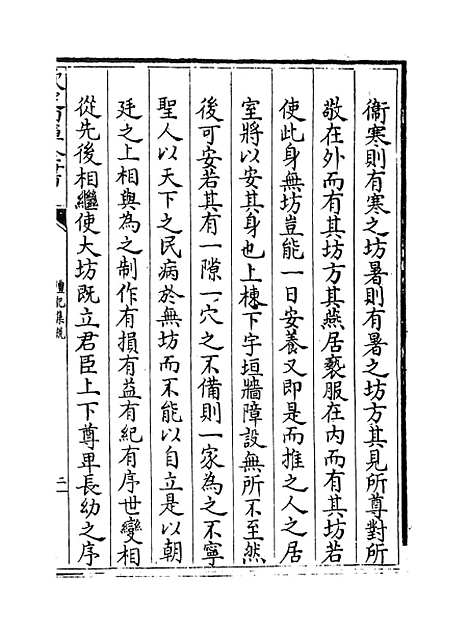 衞寒則有寒之坊暑則有暑之坊方其見所尊對所
敬在外而有其坊方其燕居褻服在内而有其坊若
使此身無坊豈能一日安養又即是而推之人之居
室將以安其身也上棟下宇垣牆障設無所不至然
後可安若其有一隙一穴之不備則一家為之不寧
聖人以天下之民病於無坊而不能以自立是以朝
廷之上相與為之制作有損有益有紀有序世變相
從先後相繼使大坊既立君臣上下尊卑長幼之序
禮記集説
二